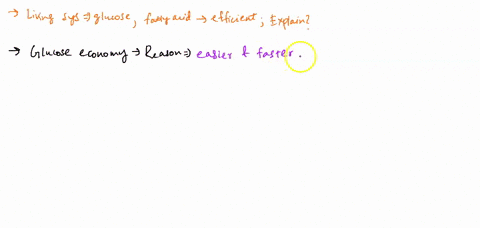 → Living sys ⇒ glucose, fatty acid → efficient; Explain?
→ Glucose economy → Reason ⇒ easier & faster.